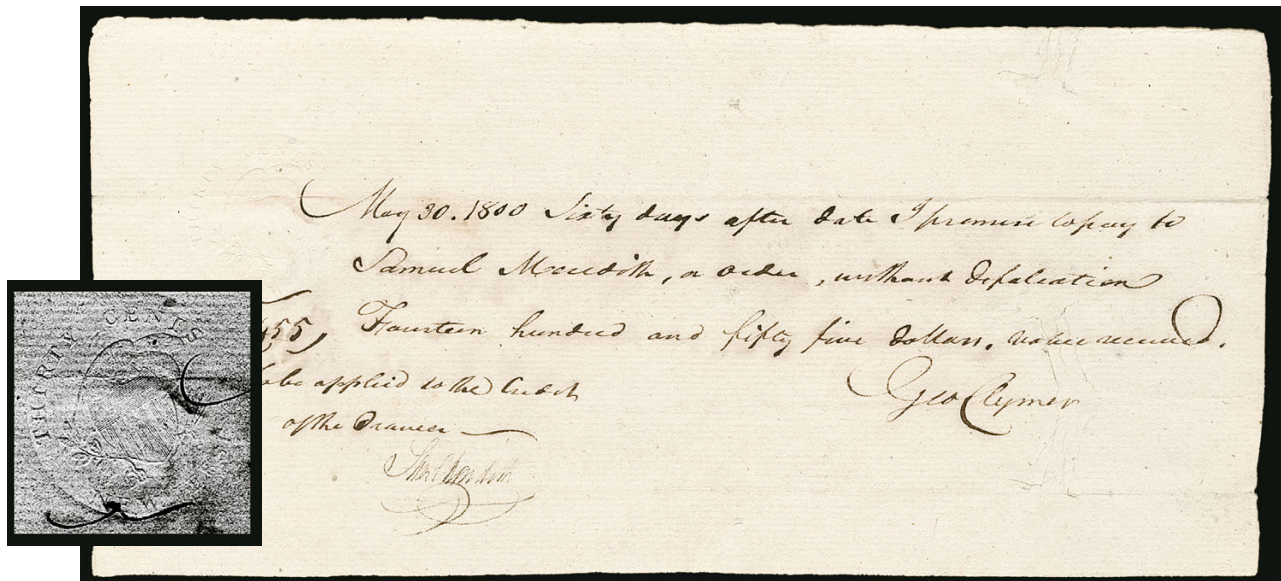 May 30. 1800 Sixty days after date I promise to pay to
Samuel Meredith, or order, without defalcation
455, Fourteen hundred and fifty five dollars, value received.
Geo Clymer
to be applied to the Credit
of the Drawer
Sam Meredith
THIRTY CENTS